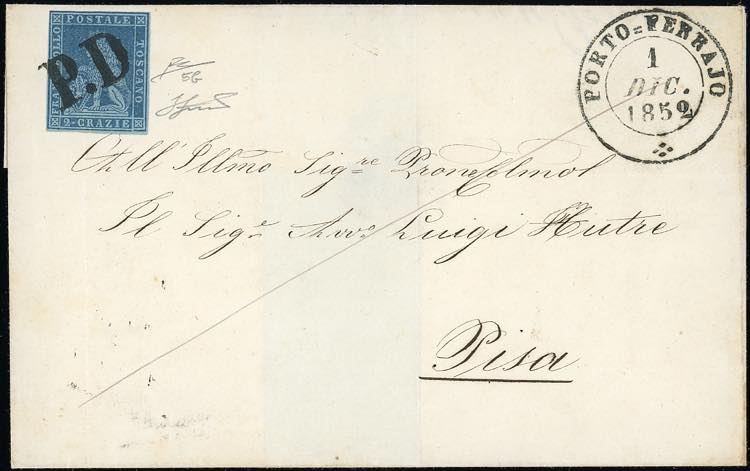 FRANCOBOLLO POSTALE TOSCANO
2 CRAZIE
P.D
5G
PORTO=FERRAJO
1
DIC.
1852
All'Illmo Sigre Prone Colmo
Il Sige Avvo Luigi
Pisa